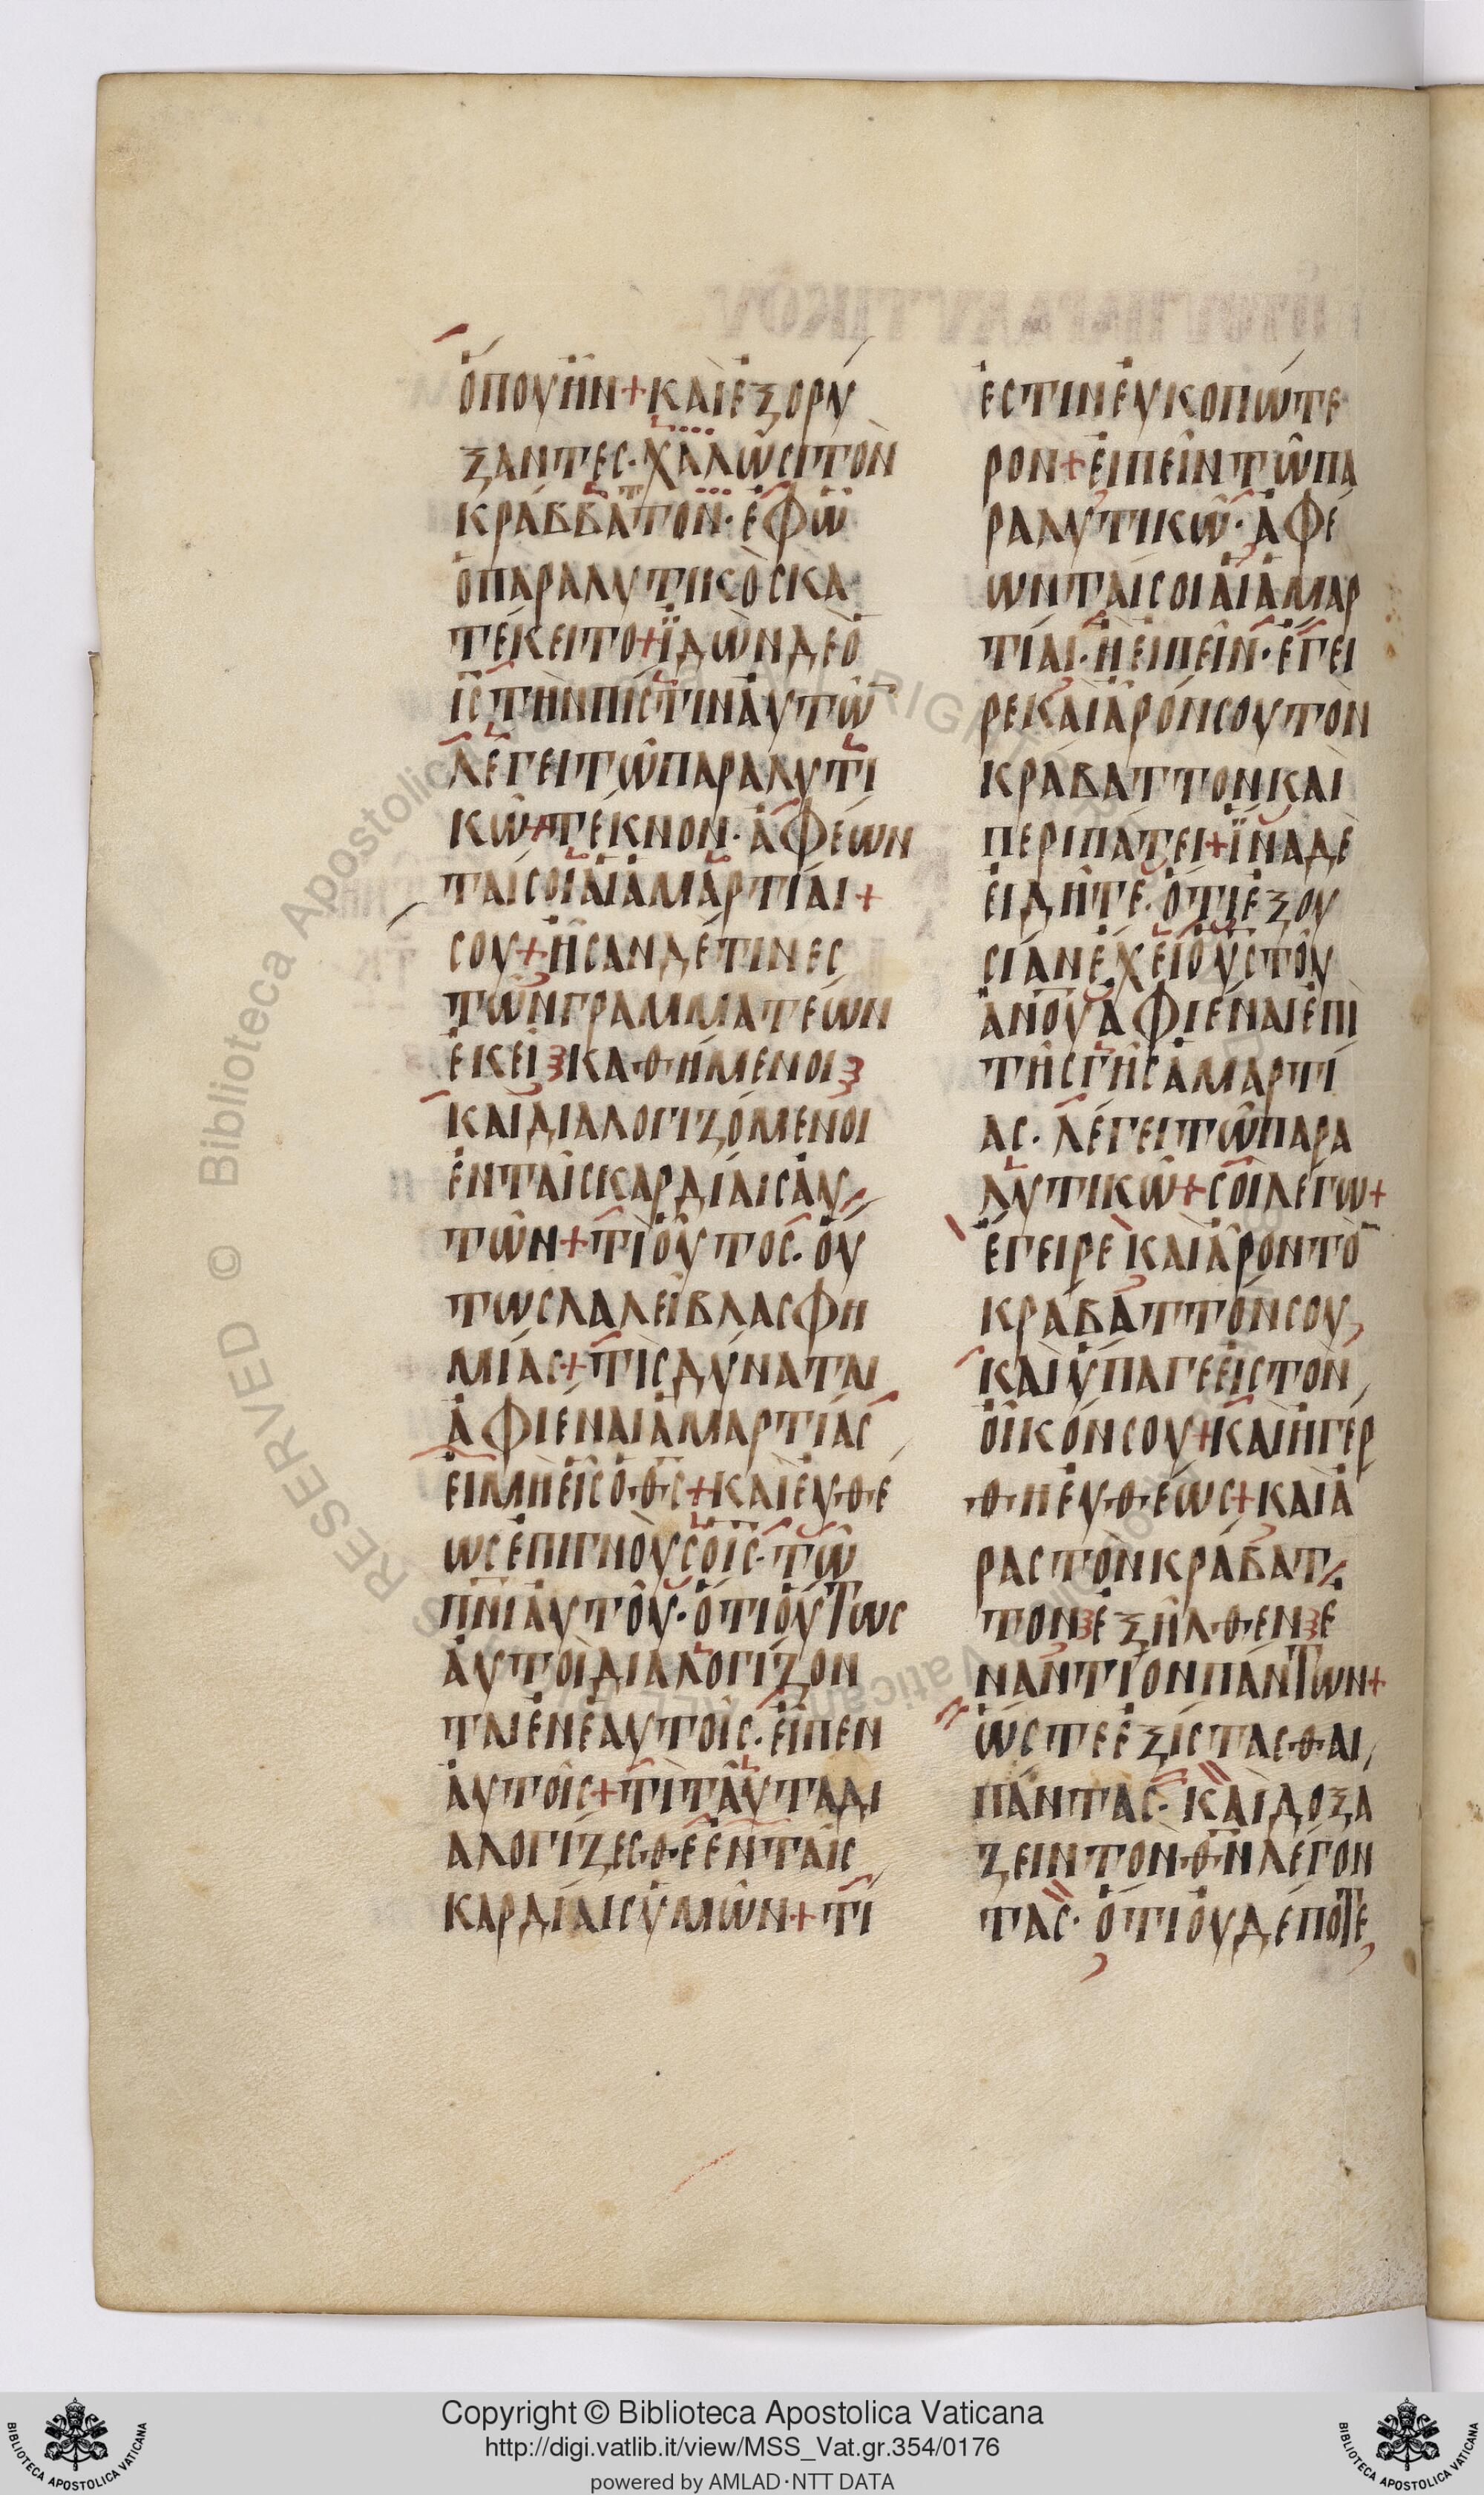 ὅπου ἦν + καὶ ἐξορύ
ξαντες · χαλῶσι τὸν
κράββατον · ἐφ ᾧ
ὁ παραλυτικὸς κα
τέκειτο + ἰδὼν δὲ ὁ
ι̅ς̅ τὴν πίστιν αὐτω̅
λέγει τῷ παραλυτι
κῷ + τέκνον · ἀφέων
ταί σοι αἱ ἁμαρτίαι +
σου + ἦσαν δέ τινες
τῶν γραμματέων
ἐκεῖ καθήμενοι
καὶ διαλογιζόμενοι
ἐν ταῖς καρδίαις αὐ
τῶν + τί οὗτος · οὕ
τως λαλεῖ βλασφη
μίας + τίς δύναται
ἀφιέναι ἁμαρτίας
εἰ μὴ εἷς ὁ θ̅ς̅ + καὶ εὐθέ
ως ἐπιγνοὺς ὁ ι̅ς̅ · τῷ
π̅ν̅ι̅ αὐτοῦ · ὅτι οὕτως
αὐτοὶ διαλογίζον
ται ἐν ἑαυτοῖς · εἶπεν
αὐτοῖς + τί ταῦτα δι
αλογίζεσθε ἐν ταῖς
καρδίαις ὑμῶν + τί
ἐστιν εὐκοπώτε
ρον + εἰπεῖν τῷ πα
ραλυτικῷ · ἀφέ
ωνταί σοι αἱ ἁμαρ
τίαι · ἢ εἰπεῖν · ἔγει
ρε καὶ ἆρόν σου τὸν
κράβαττον καὶ
περιπάτει + ἵνα δὲ
εἰδῆτε · ὅτι ἐξου
σίαν ἔχει ὁ υ̅ς̅ τοῦ
α̅ν̅ο̅υ̅ ἀφιέναι ἐπὶ
τῆς γῆς ἁμαρτί
ας · λέγει τῷ παρα
λυτικῷ + σοὶ λέγω +
ἔγειρε καὶ ἆρον το̅
κράβαττόν σου
καὶ ὕπαγε εἰς τὸν
οἶκόν σου + καὶ ἠγέρ
θη εὐθέως + καὶ ἄ
ρας τὸν κράβατ
τον ἐξῆλθεν ἐ
ναντίον πάντων +
ὥστε ἐξίστασθαι
πάντας · καὶ δοξά
ζειν τὸν θ̅ν̅ λέγον
τας · ὅτι οὐδέποτε
Copyright © Biblioteca Apostolica Vaticana
http://digi.vatlib.it/view/MSS_Vat.gr.354/0176
powered by AMLAD·NTT DATA